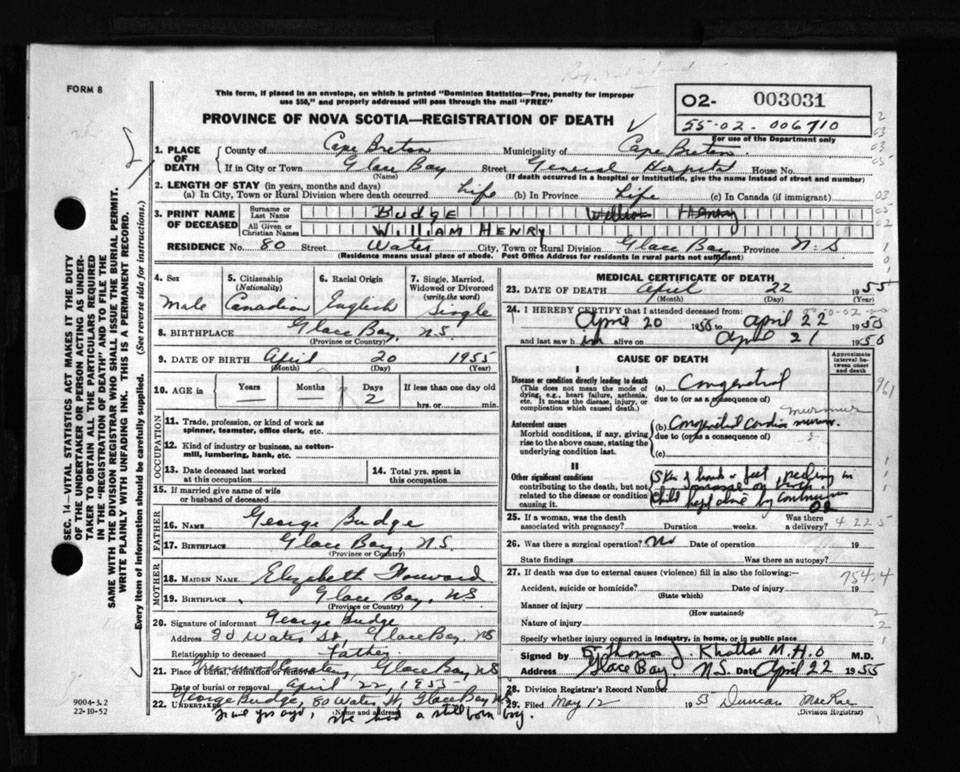 FORM 8
This form, if placed in an envelope, on which is printed "Dominion Statistics—Free, penalty for improper
use $50," and properly addressed will pass through the mail "FREE"
02- 003031
55-02. 006710
For use of the Department only
PROVINCE OF NOVA SCOTIA—REGISTRATION OF DEATH
1. PLACE OF DEATH
County of Cape Breton Municipality of Cape Breton
If in City or Town Glace Bay Street General Hospital House No.
(Name) (If death occurred in a hospital or institution, give the name instead of street and number)
2. LENGTH OF STAY (in years, months and days)
(a) In City, Town or Rural Division where death occurred Life (b) In Province Life (c) In Canada (if immigrant)
3. PRINT NAME OF DECEASED
Surname or Last Name BUDGE William Henry
All Given or Christian Names WILLIAM HENRY
RESIDENCE No. 80 Street Water City, Town or Rural Division Glace Bay Province N.S
(Residence means usual place of abode. Post Office Address for residents in rural parts not sufficient)
4. Sex Male
5. Citizenship (Nationality) Canadian
6. Racial Origin English
7. Single, Married, Widowed or Divorced (write the word) Single
8. BIRTHPLACE Glace Bay, N.S.
(Province or Country)
9. DATE OF BIRTH April 20 1955
(Month) (Day) (Year)
10. AGE in Years — Months Days 2 If less than one day old
hrs. or min.
OCCUPATION
11. Trade, profession, or kind of work as
spinner, teamster, office clerk, etc.
12. Kind of industry or business, as cotton-
mill, lumbering, bank, etc.
13. Date deceased last worked
at this occupation
14. Total yrs. spent in
this occupation
15. If married give name of wife
or husband of deceased
FATHER
16. NAME George Budge
17. BIRTHPLACE Glace Bay, N.S.
(Province or Country)
MOTHER
18. MAIDEN NAME Elizabeth Howard
19. BIRTHPLACE Glace Bay, N.S
(Province or Country)
20. Signature of informant George Budge
Address 80 Water St, Glace Bay. NS
Relationship to deceased Father
21. Greenwood Cemetery, Glace Bay NS
Place of burial, cremation or removal
Date of burial or removal April 22, 1955
22. UNDERTAKER George Budge, 80 Water St, Glace Bay NS
(Name and address)
five yrs ago, she had a still born boy.
MEDICAL CERTIFICATE OF DEATH
23. DATE OF DEATH April 22 1955
(Month) (Day) (Year)
24. I HEREBY CERTIFY that I attended deceased from:
April 20 1955 to April 22 1955
and last saw h im alive on April 21 1955
CAUSE OF DEATH
Approximate interval between onset and death
I
Disease or condition directly leading to death
(This does not mean the mode of
dying, e.g., heart failure, asthenia,
etc. It means the disease, injury, or
complication which caused death.)
(a) Congenital
due to (or as a consequence of)
Antecedent causes
Morbid conditions, if any, giving
rise to the above cause, stating the
underlying condition last.
murmur
(b) Congenital Cardiac murmur.
due to (or as a consequence of)
(c)
II
Other significant conditions
contributing to the death, but not
related to the disease or condition
causing it.
Skin of hands & feet peeling in
child kept alive by continuous
O2
25. If a woman, was the death
associated with pregnancy? Duration weeks. Was there
a delivery?
26. Was there a surgical operation? No Date of operation 19
State findings Was there an autopsy?
27. If death was due to external causes (violence) fill in also the following:—
Accident, suicide or homicide? Date of injury 19
(State which)
754.4
Manner of injury
(How sustained)
Nature of injury
Specify whether injury occurred in industry, in home, or in public place
Signed by Khattar M.H.O M.D.
Address Glace Bay, N.S. Date April 22 1955
28. Division Registrar's Record Number
29. Filed May 12 1955 Duncan MacRae
(Division Registrar)
SEC. 14—VITAL STATISTICS ACT MAKES IT THE DUTY
OF THE UNDERTAKER OR PERSON ACTING AS UNDER-
TAKER TO OBTAIN ALL THE PARTICULARS REQUIRED
IN THE "REGISTRATION OF DEATH" AND TO FILE THE
SAME WITH THE DIVISION REGISTRAR WHO SHALL ISSUE THE BURIAL PERMIT.
WRITE PLAINLY WITH UNFADING INK. THIS IS A PERMANENT RECORD.
Every item of information should be carefully supplied. (See reverse side for instructions.)
9004-3.2
22-10-52